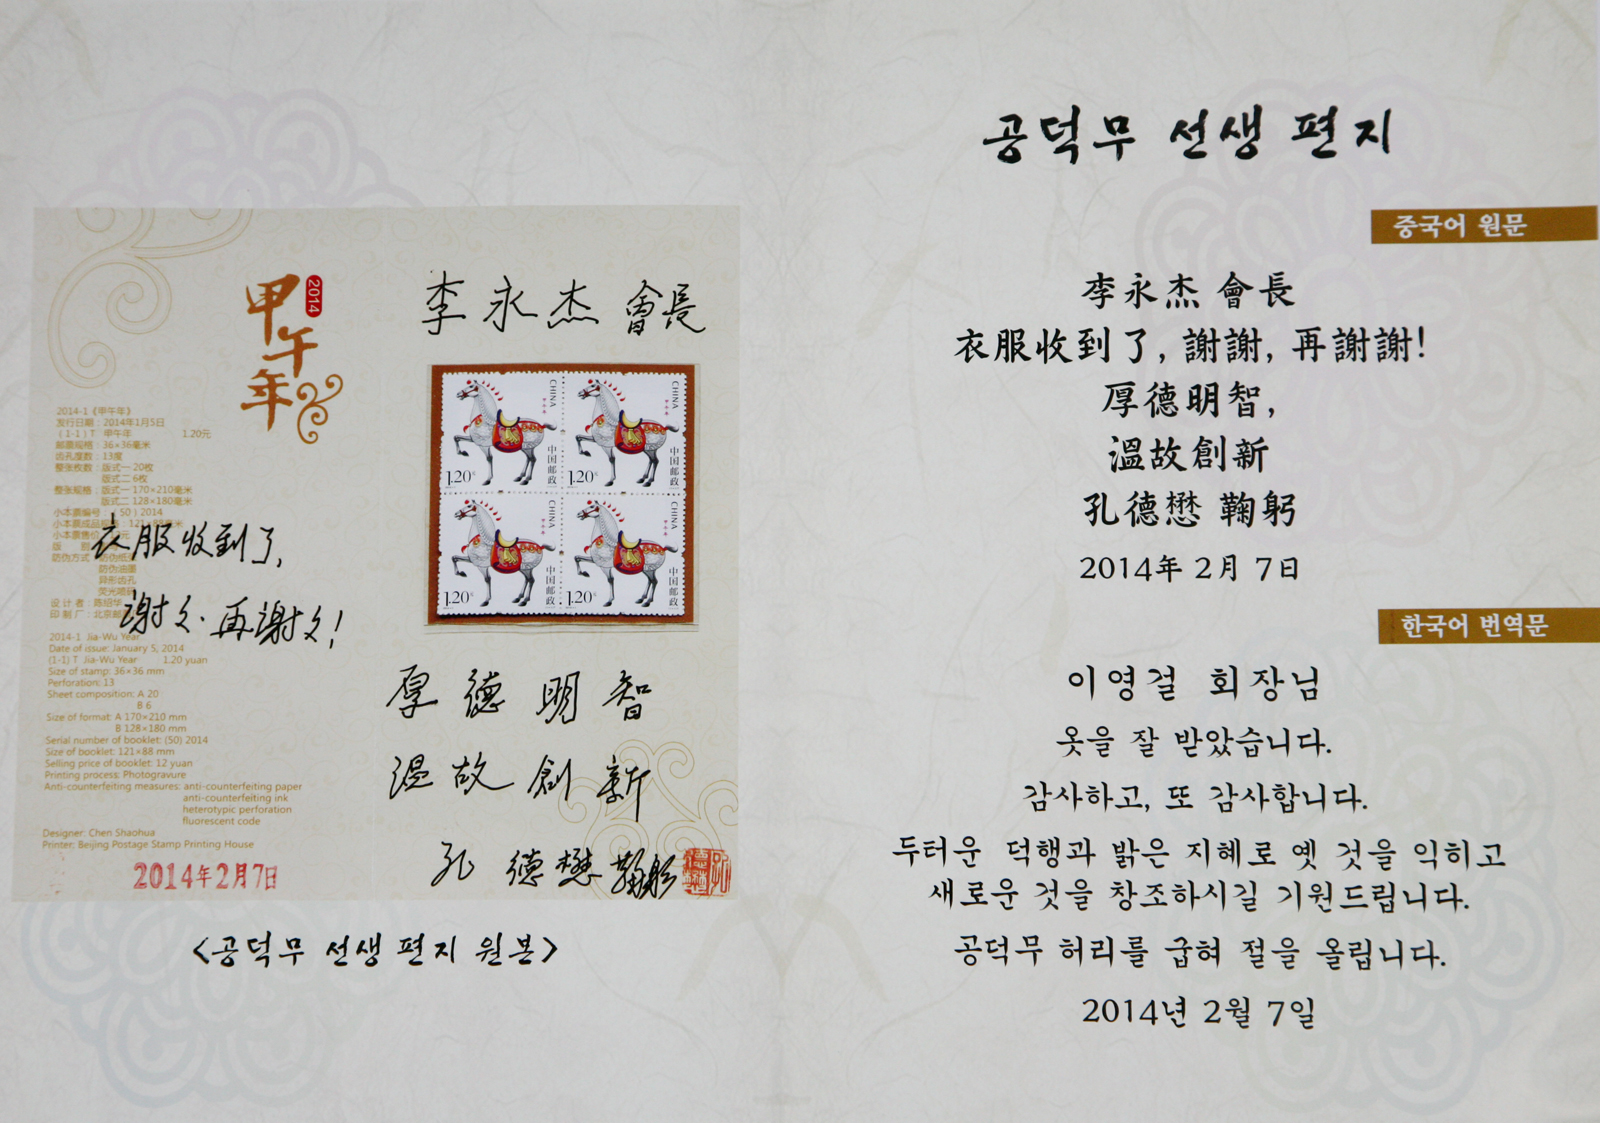 2014
甲午年
2014-1《甲午年》
发行日期：2014年1月5日
(1-1) T 甲午年 1.20元
邮票规格：36×36毫米
齿孔度数：13度
整张枚数：版式一 20枚
版式二 6枚
整张规格：版式一 170×210毫米
版式二 128×180毫米
小本票编号：(50) 2014
小本票成品规格：121×88毫米
防伪方式：
防伪油墨
异形齿孔
设计者：陈绍华
2014-1 Jia-Wu Year
Date of issue: January 5, 2014
(1-1) T Jia-Wu Year 1.20 yuan
Size of stamp: 36×36 mm
Perforation: 13
Sheet composition: A 20
B 6
Size of format: A 170×210 mm
B 128×180 mm
Serial number of booklet: (50) 2014
Size of booklet: 121×88 mm
Selling price of booklet: 12 yuan
Printing process: Photogravure
Anti-counterfeiting measures: anti-counterfeiting paper
anti-counterfeiting ink
heterotypic perforation
fluorescent code
Designer: Chen Shaohua
Printer: Beijing Postage Stamp Printing House
2014年2月7日
李永杰 會長
CHINA
中国邮政
1.20元
CHINA
中国邮政
1.20元
CHINA
中国邮政
1.20元
CHINA
中国邮政
1.20元
衣服收到了,
谢々.再谢々!
厚德明智
溫故創新
孔德懋 鞠躬
<공덕무 선생 편지 원본>
공덕무 선생 편지
중국어 원문
李永杰 會長
衣服收到了, 謝謝, 再謝謝!
厚德明智,
溫故創新
孔德懋 鞠躬
2014年 2月 7日
한국어 번역문
이영걸 회장님
옷을 잘 받았습니다.
감사하고, 또 감사합니다.
두터운 덕행과 밝은 지혜로 옛 것을 익히고
새로운 것을 창조하시길 기원드립니다.
공덕무 허리를 굽혀 절을 올립니다.
2014년 2월 7일